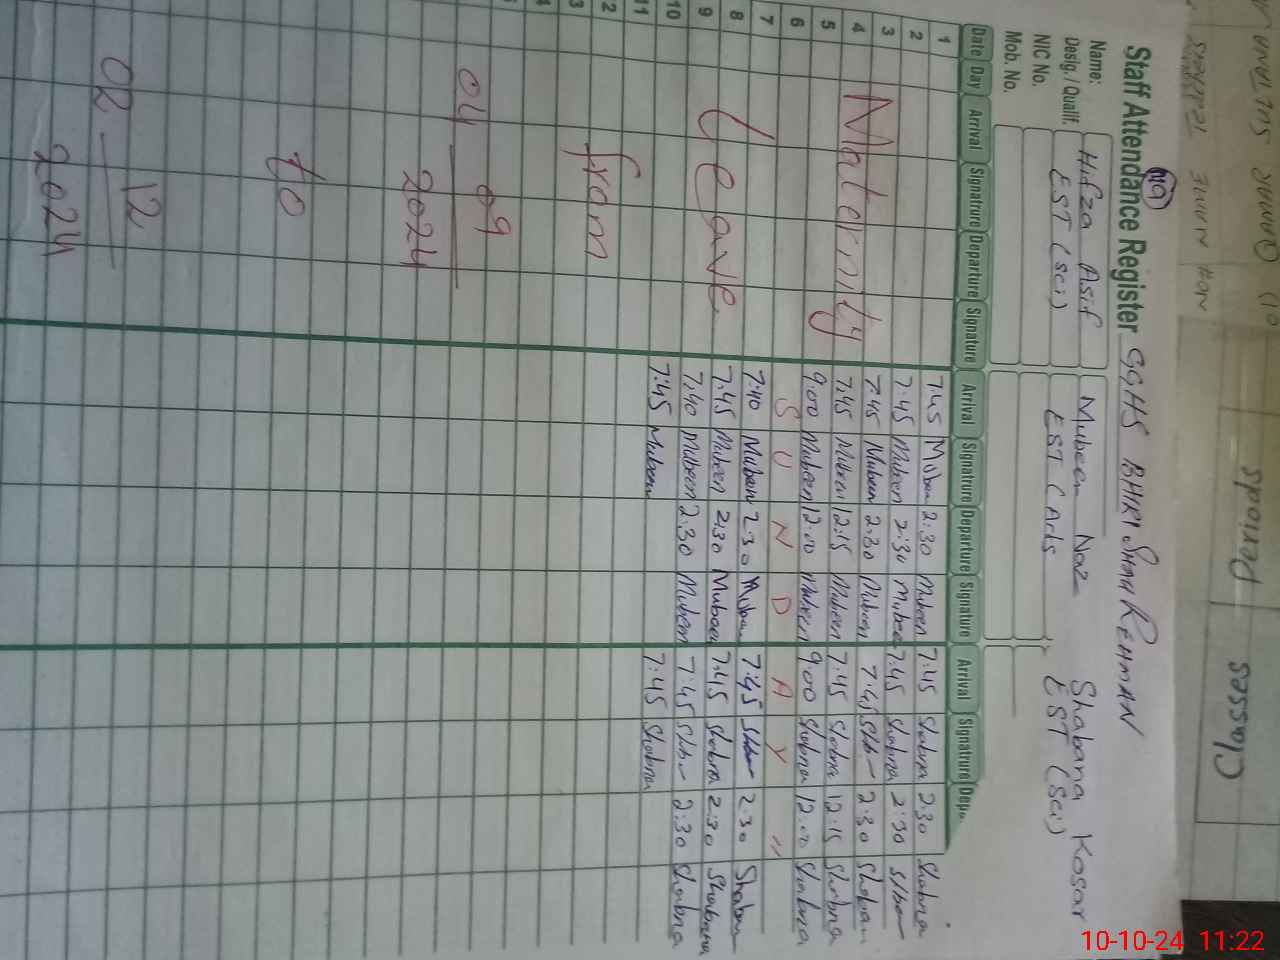 Classes
Periods
Staff Attendance Register GGHS BHIRI SHAH REHMAN
Name: Hifza Asif Mubeen Naz Shabana Kosar
Desig./ Qualif. EST (Sci) EST (Arts EST (Sci)
NIC No.
Mob. No.
Date Day Arrival Signatrure Departure Signature Arrival Signatrure Departure Signature Arrival Signatrure Depa
1 7:45 Mubeen 2:30 Mubeen 7:45 Shabna 2:30 Shabna
2 7:45 Mubeen 2:30 Mubeen 7:45 Shabna 2:30
3 7:45 Mubeen 2:30 Mubeen 7:45 2:30
4 Maternity 7:45 Mubeen 12:15 Mubeen 7:45 Shabna 12:15 Shabna
5 9:00 Mubeen 12:00 Mubeen 9:00 Shabna 12:00 Shabna
6 S U N D A Y "
7 7:40 Mubeen 2:30 Mubeen 7:45 2:30
8 Leave 7:45 Mubeen 2:30 Mubeen 7:45 Shabna 2:30 Shabana
9 7:40 Mubeen 2:30 Mubeen 7:45 2:30 Shabna
10 7:45 Mubeen 7:45 Shabna
11
12 from
13
04
09
2024
to
02
12
2024
10-10-24 11:22